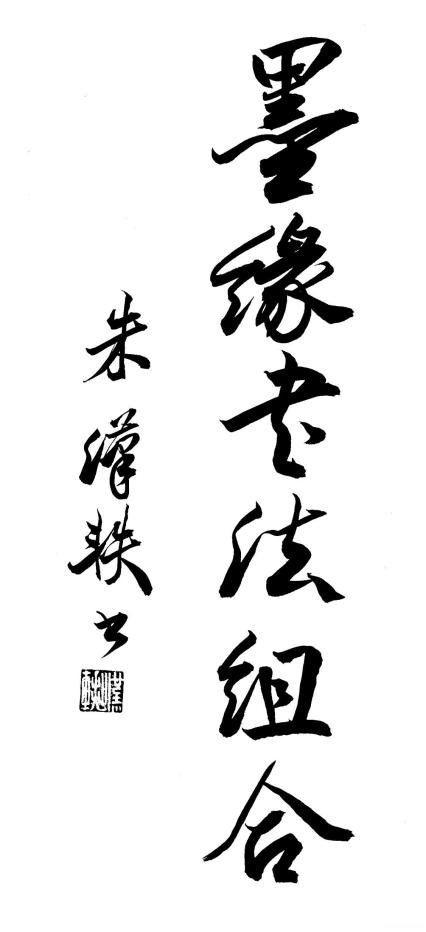 墨缘书法组合
朱汉轶书